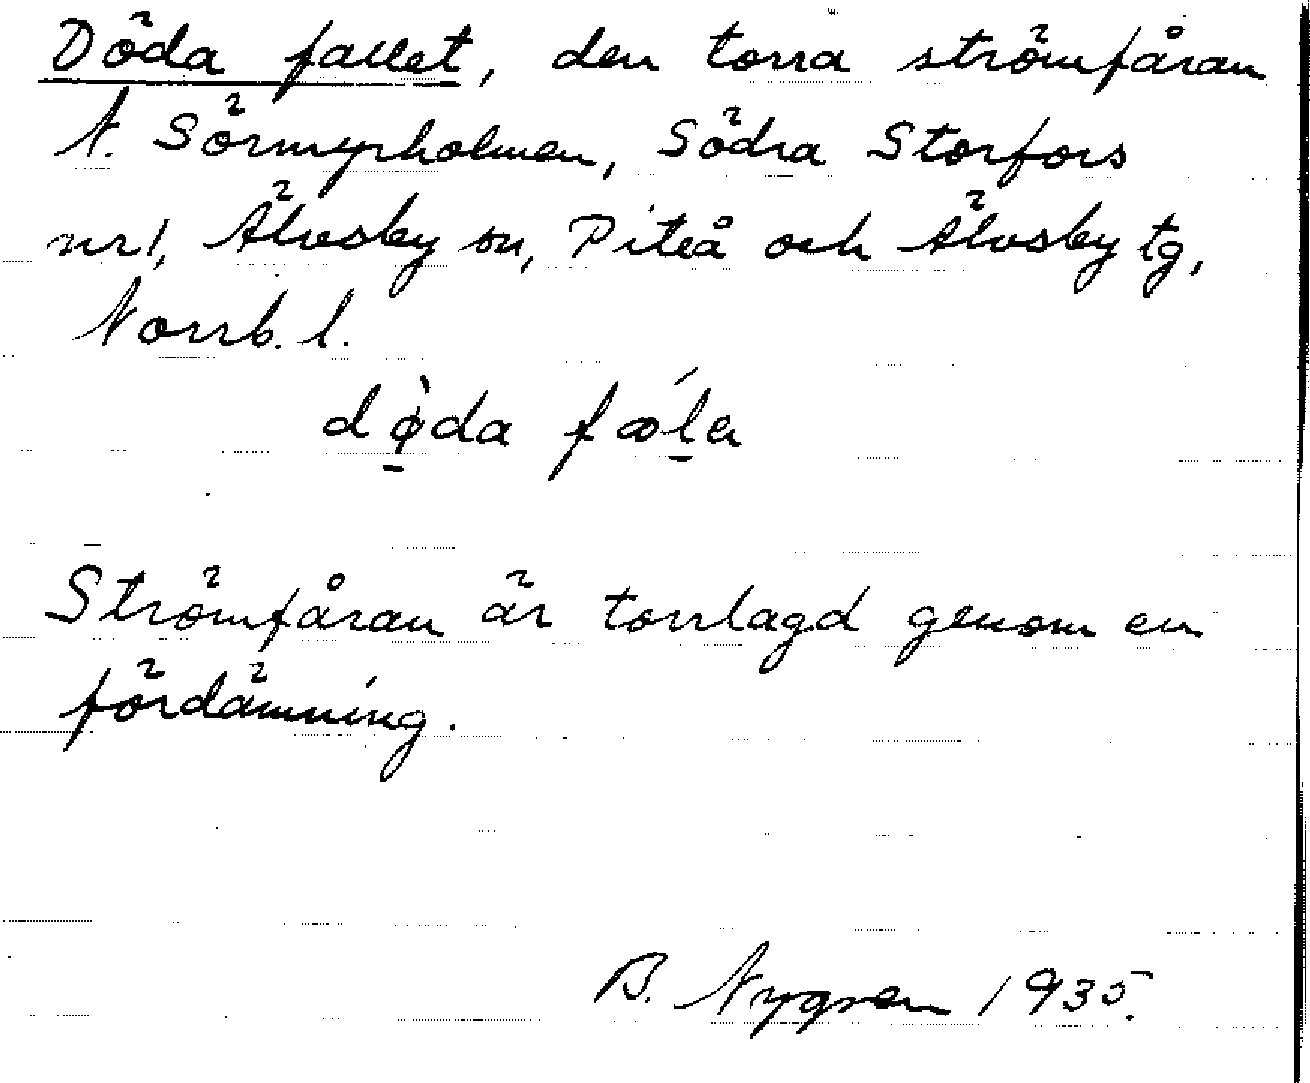 Döda fallet, den torra strömfåran
N. Sörmyrholmen, Södra Storfors
nr 1, Älvsby sn, Piteå och Älvsby tg,
Norrb. l.
dø̀da fæĺa
Strömfåran är torrlagd genom en
fördämning.
B. Nygren 1935.